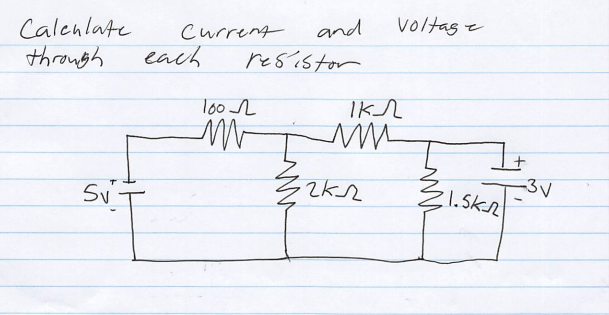 Calculate current and voltage
through each resistor
100Ω 1KΩ
5v + - 2KΩ 1.5KΩ + - 3V